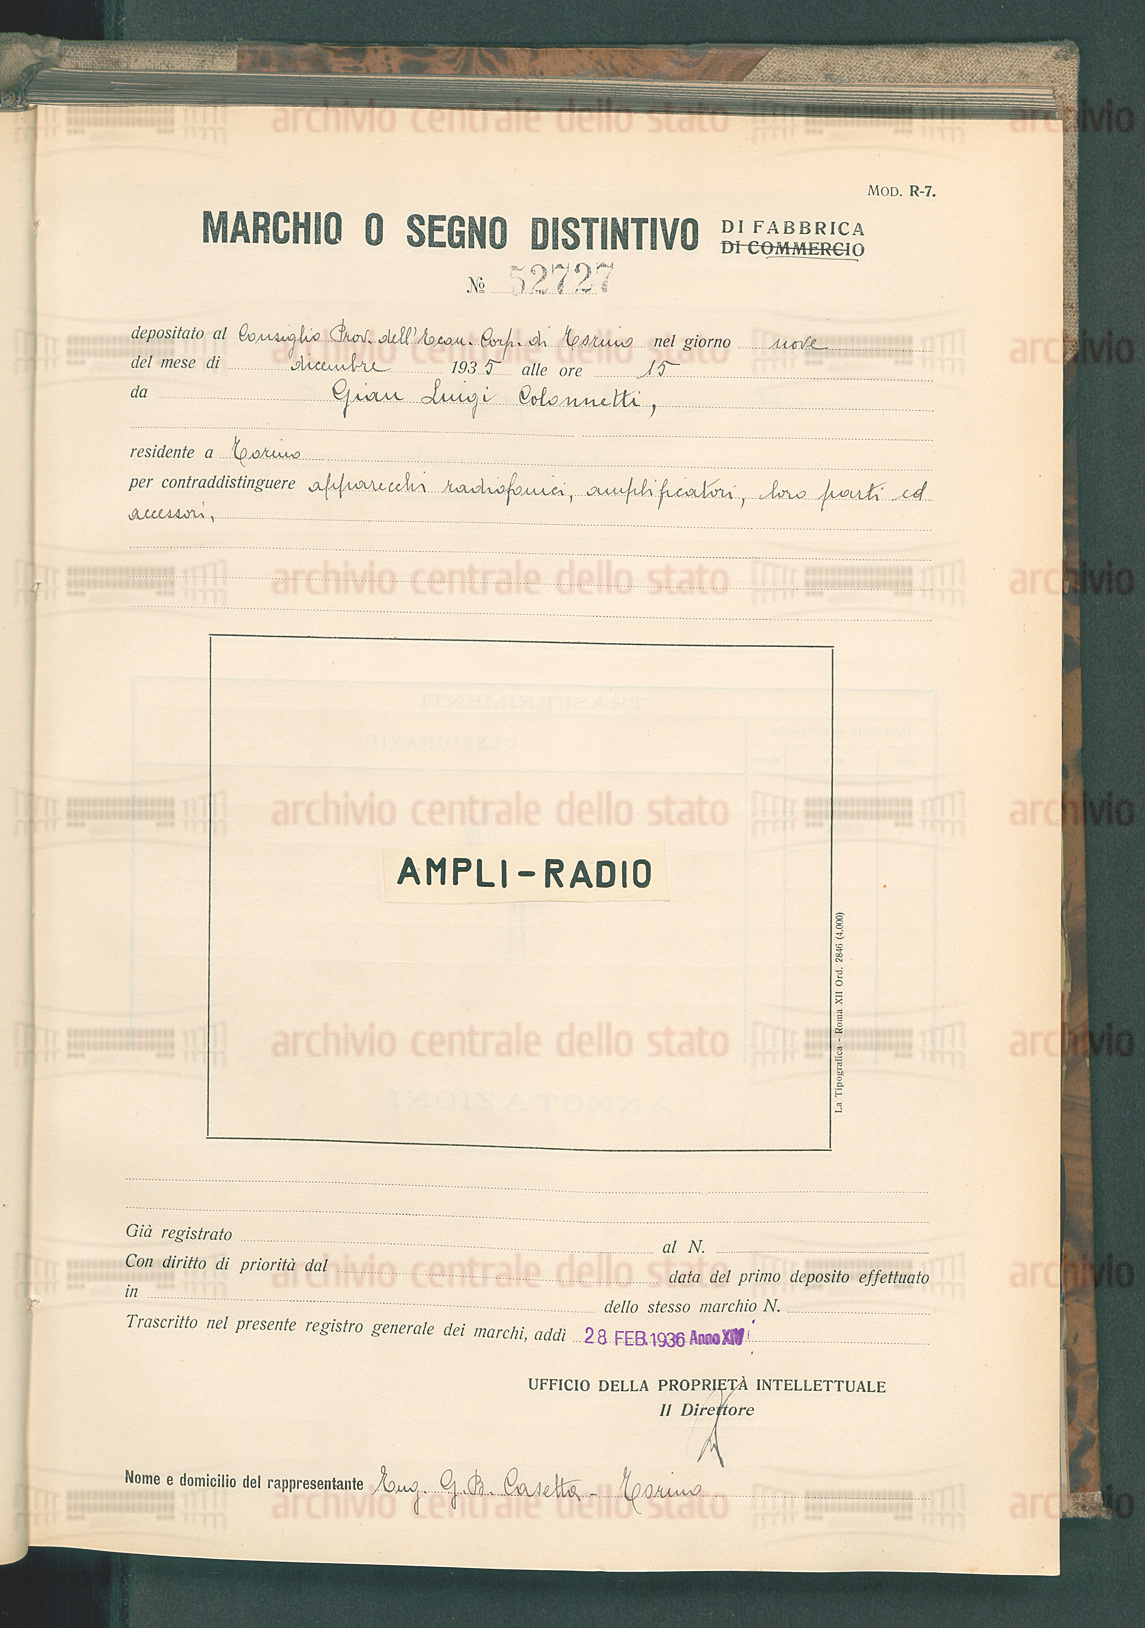 MOD. R-7.
MARCHIO O SEGNO DISTINTIVO DI FABBRICA
DI COMMERCIO
№ 52727
depositato al Consiglio Prov. dell'Econ. Corp. di Torino nel giorno nove
del mese di dicembre 1935 alle ore 15
da Gian Luigi Colonnetti,
residente a Torino
per contraddistinguere apparecchi radiofonici, amplificatori, loro parti ed
accessori,
AMPLI-RADIO
La Tipografica - Roma XII Ord. 2846 (4.000)
Già registrato al N.
Con diritto di priorità dal data del primo deposito effettuato
in dello stesso marchio N.
Trascritto nel presente registro generale dei marchi, addì 28 FEB. 1936 Anno XIV
UFFICIO DELLA PROPRIETÀ INTELLETTUALE
Il Direttore
Nome e domicilio del rappresentante Ing. G. B. Casetta - Torino
archivio centrale dello stato